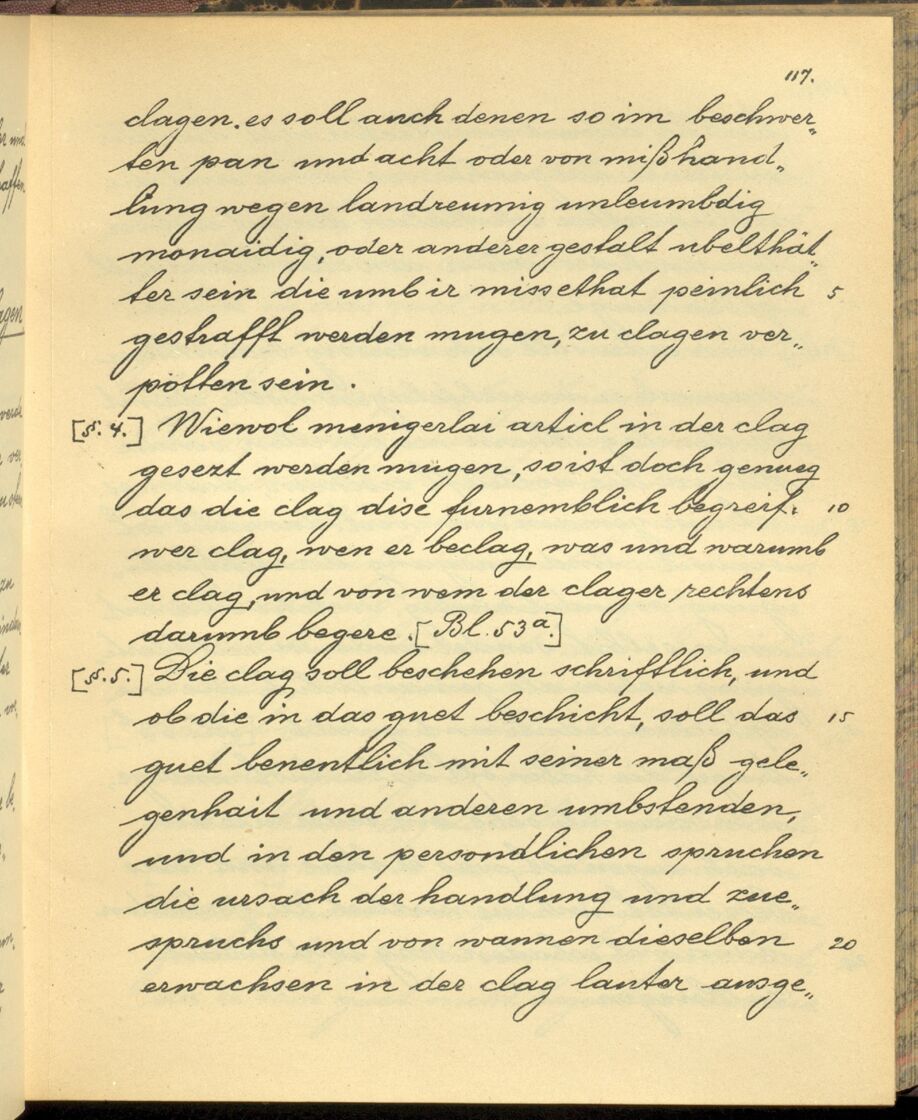 117.
clagen. es soll auch denen so im beschwer„
ten pan und acht oder von mißhand„
lung wegen landreumig unleumbdig
monaidig, oder anderer gestalt ubelthät„
ter sein die umb ir missethat peinlich 5
gestrafft werden mugen, zu clagen ver„
potten sein.
[§. 4.] Wiewol menigerlai articl in der clag
gesezt werden mugen, so ist doch genueg
das die clag dise furnemblich begreif: 10
wer clag, wen er beclag, was und warumb
er clag, und von wem der clager rechtens
darumb begere. [Bl. 53a.]
[§. 5.] Die clag soll beschehen schrifftlich, und
ob die in das guet beschicht, soll das 15
guet benentlich mit seiner maß gele„
genhait und anderen umbstenden,
und in den persondlichen spruchen
die ursach der handlung und zue„
spruchs und von wannen dieselben 20
erwachsen in der clag lauter ausge„